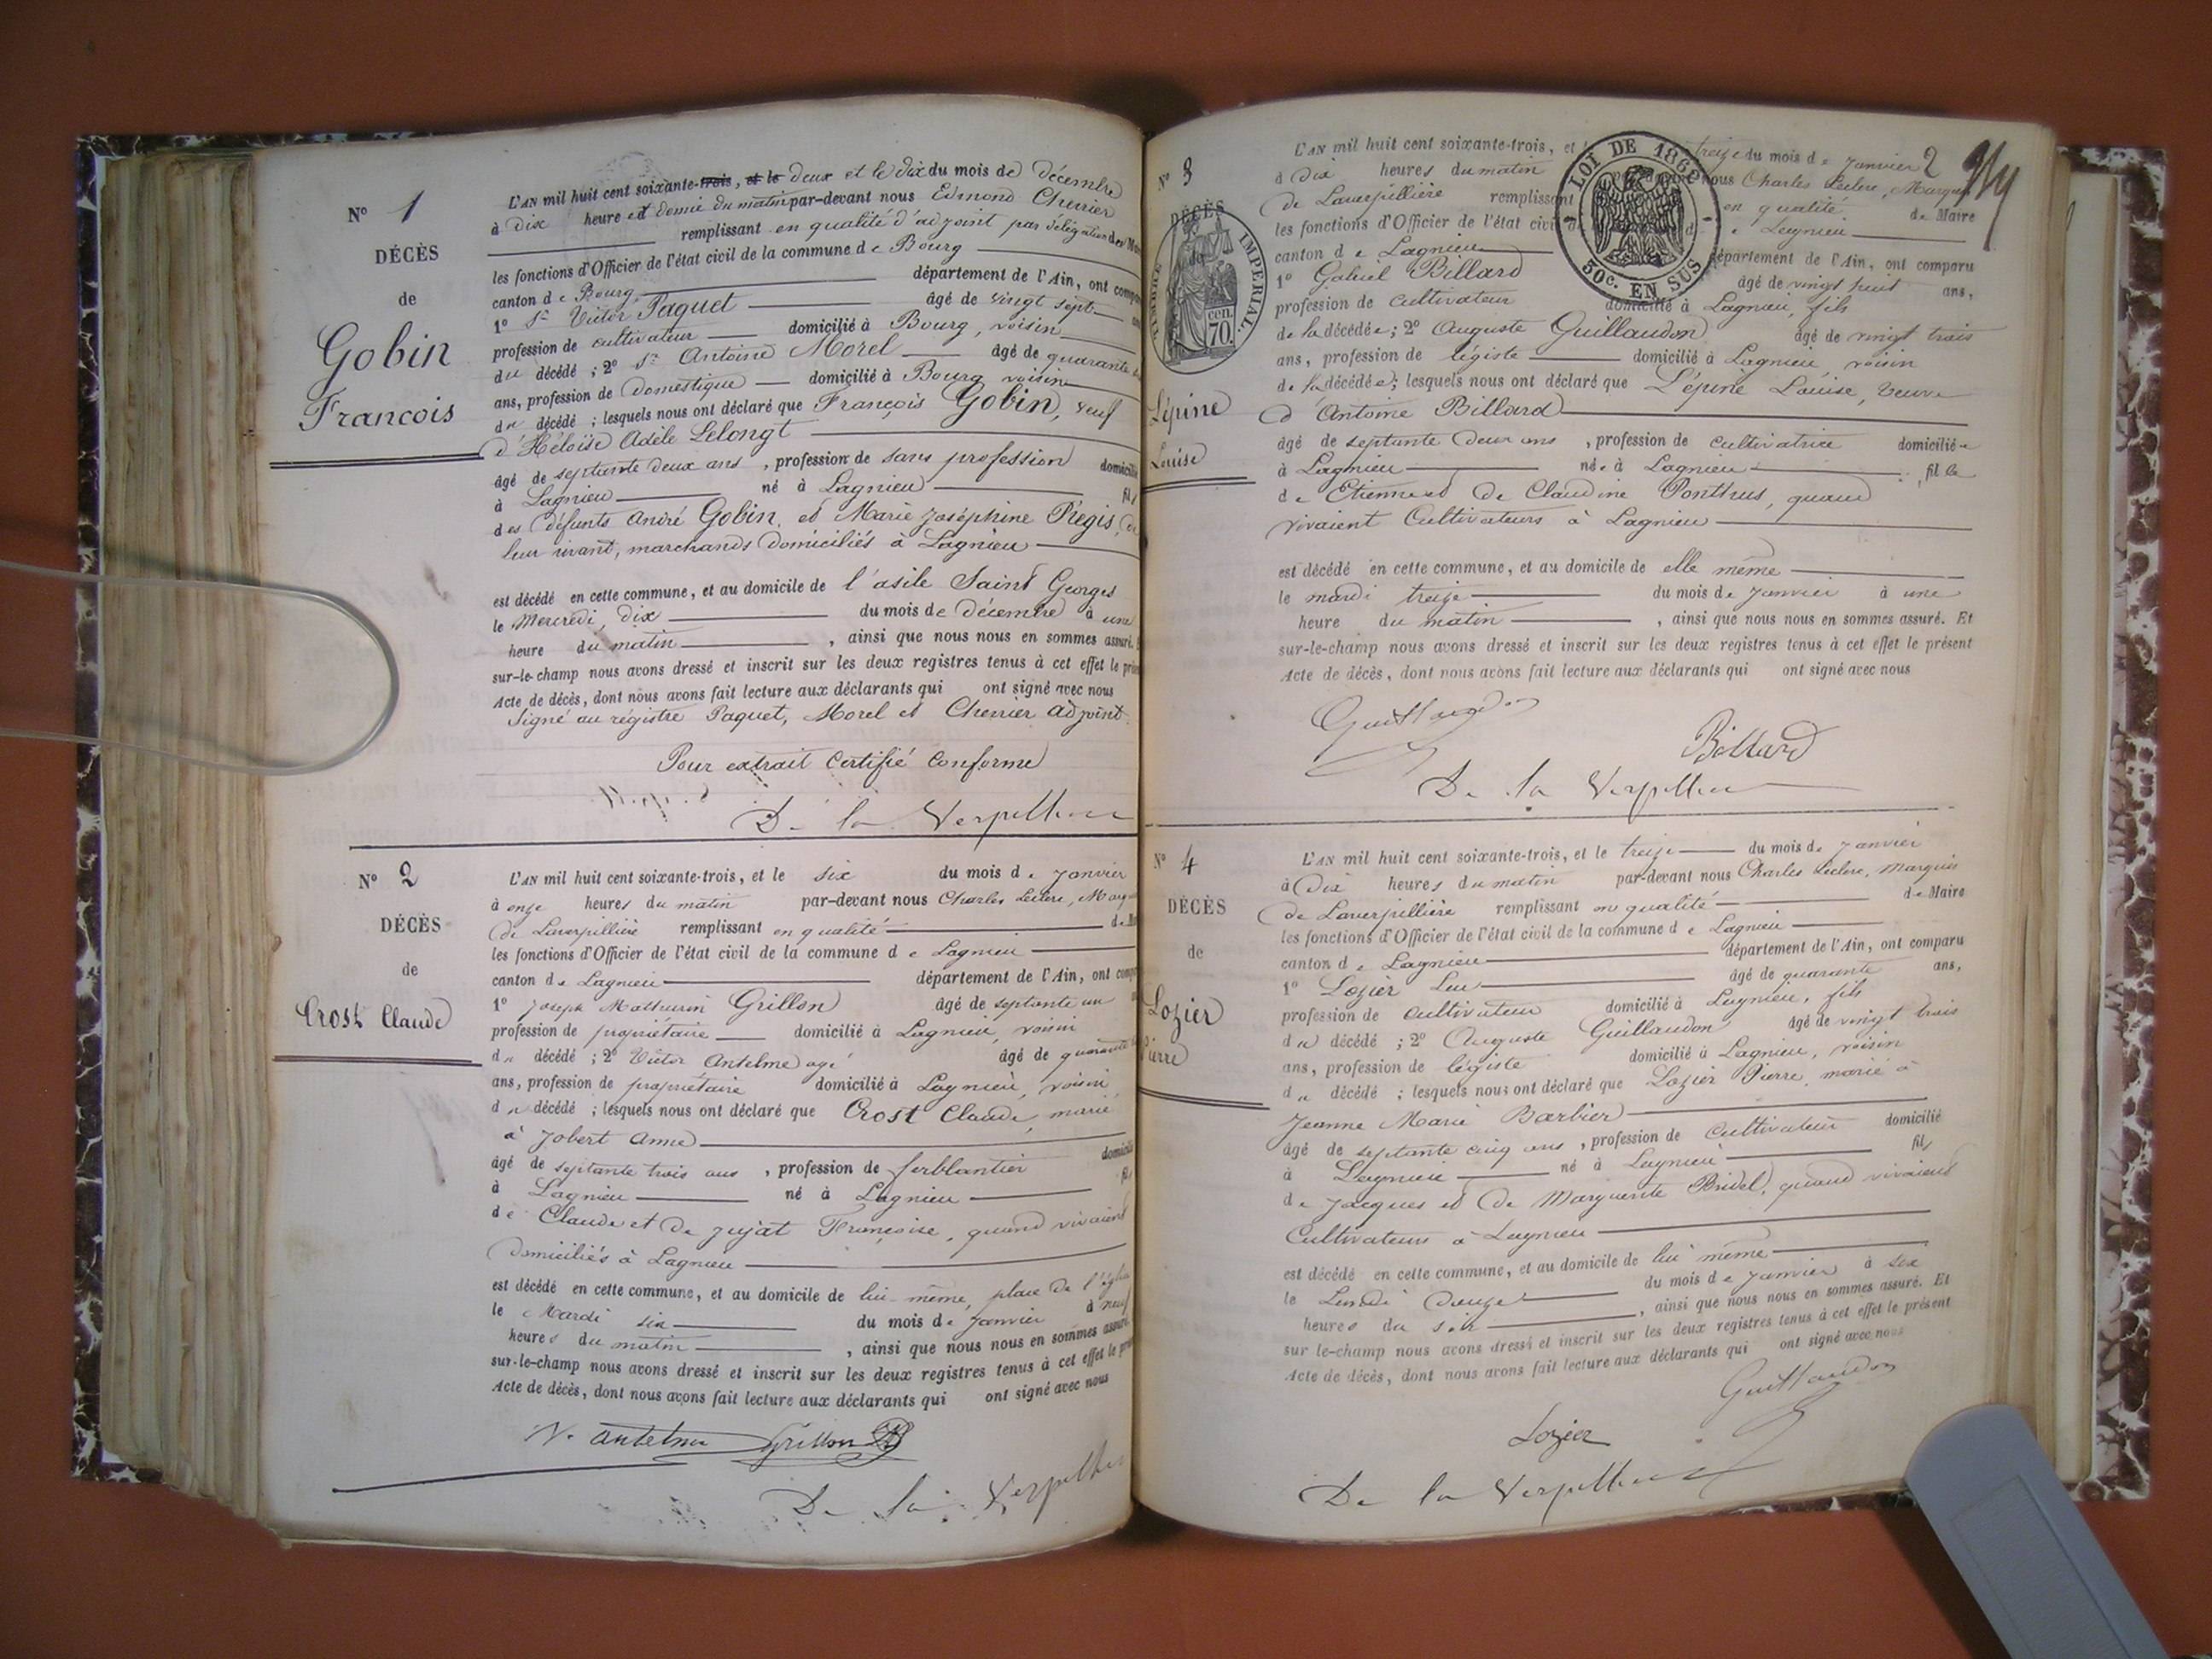 N° 1
DÉCÈS
de
Gobin
Francois
L'AN mil huit cent soixante-trois, et le deux et le dix du mois de Décembre
à Dix heure et demie du matin par-devant nous Edmond Cherrier
remplissant en qualité d'adjoint par délégation
les fonctions d'Officier de l'état civil de la commune de Bourg
canton de Bourg département de l'Ain, ont
1° Sr Victor Paquet âgé de vingt sept
profession de cultivateur domicilié à Bourg, voisin
du décédé ; 2° Sr Antoine Morel âgé de quarante
ans, profession de Domestique domicilié à Bourg voisin
du décédé ; lesquels nous ont déclaré que François Gobin, veuf
d'Héloïse Adèle Lelongt
âgé de septante deux ans , profession de sans profession
à Lagnieu né à Lagnieu fils
des défunts André Gobin, et Marie Joséphine Prégis,
leur vivant, marchands domiciliés à Lagnieu
est décédé en cette commune, et au domicile de l'asile Saint Georges
le Mercredi, dix du mois de Décembre à une
heure du matin , ainsi que nous nous en sommes assuré.
sur-le-champ nous avons dressé et inscrit sur les deux registres tenus à cet effet le
Acte de décès, dont nous avons fait lecture aux déclarants qui ont signé avec nous
Signé au régistre Paquet, Morel et Cherrier adjoint
Pour extrait certifié conforme
De la Verpillière
N° 2
DÉCÈS
de
Crost Claude
L'AN mil huit cent soixante-trois, et le six du mois de Janvier
à onze heures du matin par-devant nous Charles Leclerc,
de Laverpillière remplissant en qualité
les fonctions d'Officier de l'état civil de la commune de Lagnieu
canton de Lagnieu département de l'Ain, ont
1° Joseph Mathurin Grillon âgé de septante un
profession de propriétaire domicilié à Lagnieu, voisin
du décédé ; 2° Victor Antelme agé âgé de quarante
ans, profession de propriétaire domicilié à Lagnieu, voisin
du décédé ; lesquels nous ont déclaré que Crost Claude, marié
à Jobert Anne
âgé de septante trois ans , profession de ferblantier
à Lagnieu né à Lagnieu
de Claude et de Jujat Françoise, quand vivaient
domiciliés à Lagnieu
est décédé en cette commune, et au domicile de lui-même, place de l'église
le Mardi six du mois de Janvier à neuf
heures du matin , ainsi que nous nous en sommes assuré.
sur-le-champ nous avons dressé et inscrit sur les deux registres tenus à cet effet le
Acte de décès, dont nous avons fait lecture aux déclarants qui ont signé avec nous
V. antelme Grillon
De la Verpillière
2
N° 3
DÉCÈS
de
Lépine
Louise
TIMBRE IMPERIAL.
70.
LOI DE 1862
30c. EN SUS
L'AN mil huit cent soixante-trois, et treize du mois de Janvier
à Dix heures du matin nous Charles Leclerc, Marquis
de Laverpillière remplissant en qualité de Maire
les fonctions d'Officier de l'état civil de Lagnieu
canton de Lagnieu département de l'Ain, ont comparu
1° Gabriel Billard âgé de vingt huit ans,
profession de cultivateur domicilié à Lagnieu, fils
de la décédée ; 2° Auguste Guillaudon âgé de vingt trois
ans, profession de légiste domicilié à Lagnieu, voisin
de la décédée ; lesquels nous ont déclaré que Lépine Louise, veuve
d'Antoine Billard
âgé de septante deux ans , profession de cultivatrice domiciliée
à Lagnieu née à Lagnieu fille
de Etienne et de Claudine Ponthus, quand
vivaient Cultivateurs à Lagnieu
est décédé en cette commune, et au domicile de elle même
le mardi treize du mois de Janvier à une
heure du matin , ainsi que nous nous en sommes assuré. Et
sur-le-champ nous avons dressé et inscrit sur les deux registres tenus à cet effet le présent
Acte de décès, dont nous avons fait lecture aux déclarants qui ont signé avec nous
Guillaudon
Billard
De la Verpillière
N° 4
DÉCÈS
de
Lozier
Pierre
L'AN mil huit cent soixante-trois, et le treize du mois de Janvier
à Dix heures du matin par-devant nous Charles Leclerc, Marquis
de Laverpillière remplissant en qualité de Maire
les fonctions d'Officier de l'état civil de la commune de Lagnieu
canton de Lagnieu département de l'Ain, ont comparu
1° Lozier Luc âgé de quarante ans,
profession de cultivateur domicilié à Lagnieu, fils
du décédé ; 2° Auguste Guillaudon âgé de vingt trois
ans, profession de légiste domicilié à Lagnieu, voisin
du décédé ; lesquels nous ont déclaré que Lozier Pierre, marié à
Jeanne Marie Barbier
âgé de septante cinq ans , profession de Cultivateur domicilié
à Lagnieu né à Lagnieu fils
de Jacques et de Marguerite Bridel, quand vivaient
Cultivateurs à Lagnieu
est décédé en cette commune, et au domicile de lui même
le Lundi douze du mois de Janvier à six
heures du soir , ainsi que nous nous en sommes assuré. Et
sur le-champ nous avons dressé et inscrit sur les deux registres tenus à cet effet le présent
Acte de décès, dont nous avons fait lecture aux déclarants qui ont signé avec nous
Guillaudon
Lozier
De la Verpillière